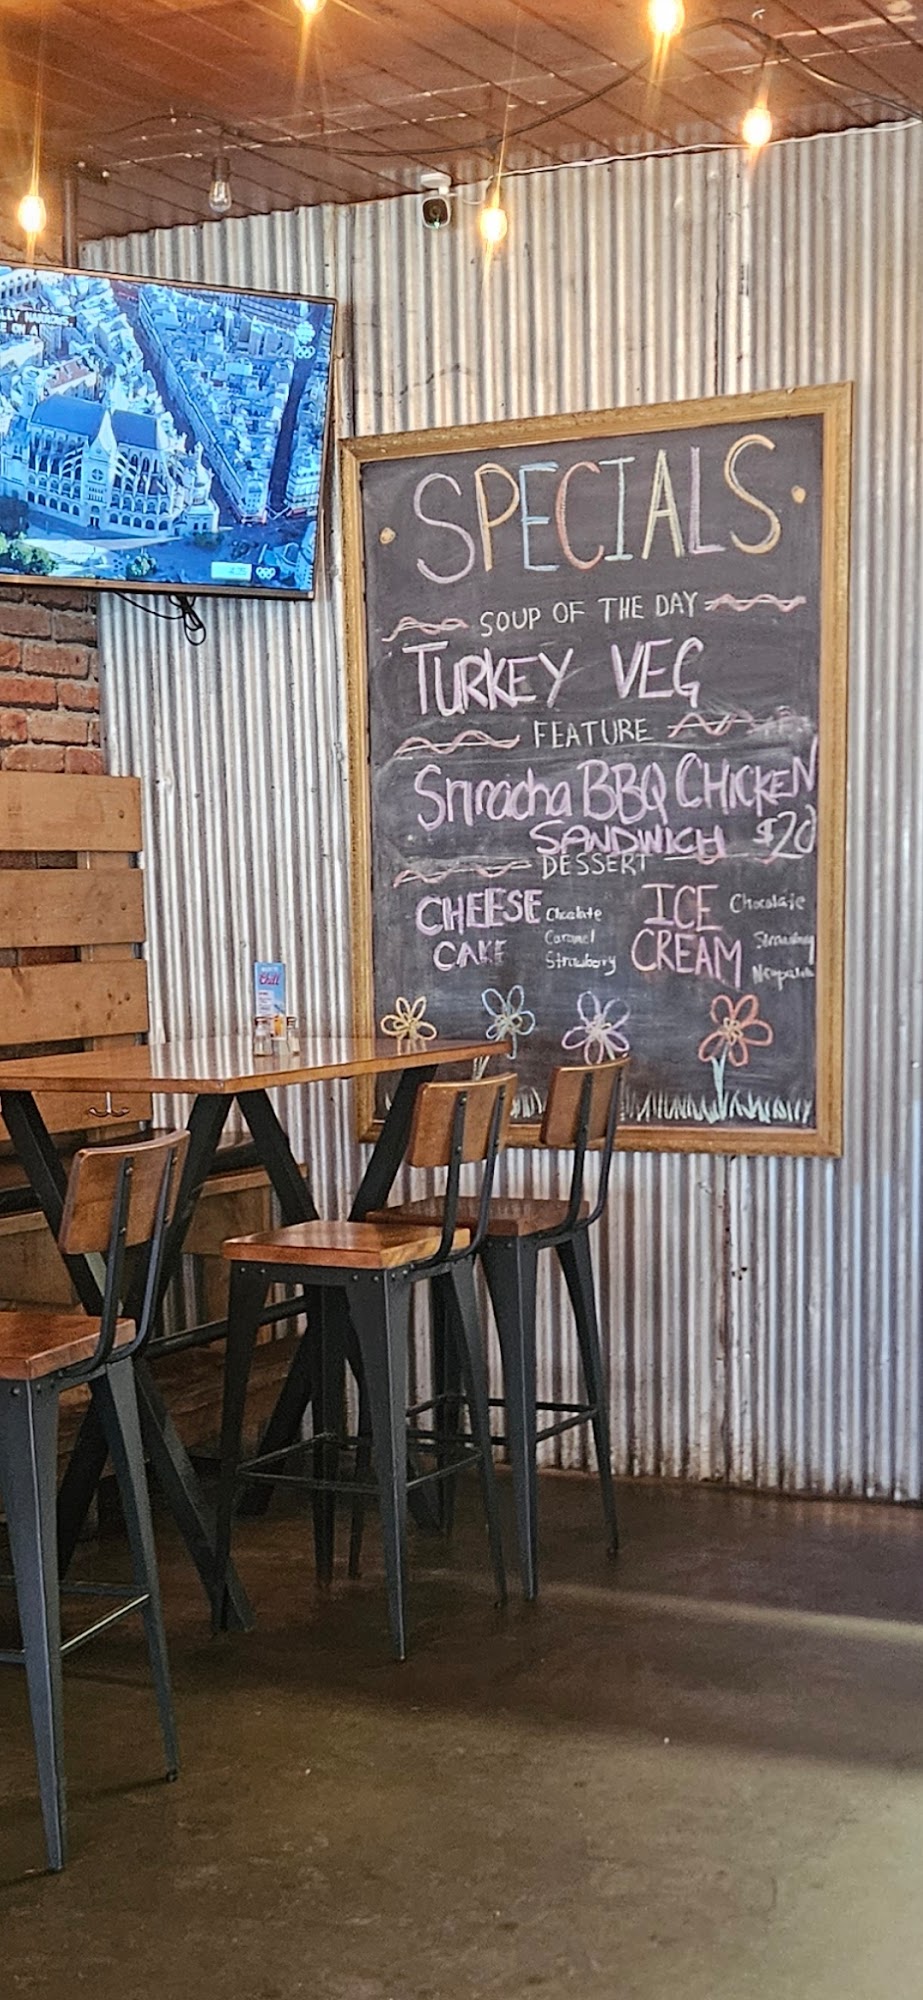 SPECIALS
SOUP OF THE DAY
TURKEY VEG
FEATURE
Sriracha BBQ CHICKEN
SANDWICH $20
DESSERT
CHEESE Chocolate ICE Chocolate
CAKE Caramel CREAM Strawberry
Strawberry
Chill